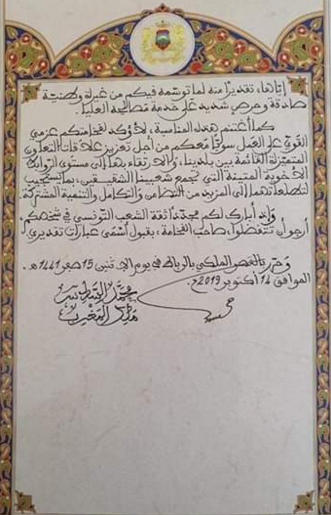 إياها، تقديرا منه لما توسمه فيكم من غيرة وطنية
صادقة وحرص شديد على خدمة مصالحه العليا.
كما أغتنم هذه المناسبة، لأؤكد لفخامتكم عزمي
القوي على العمل سويا معكم من أجل تعزيز علاقات التعاون
المتميزة القائمة بين بلدينا، والارتقاء بها إلى مستوى الروابط
الأخوية المتينة التي تجمع شعبينا الشقيقين، بما يستجيب
لتطلعاتهما إلى المزيد من التضامن والتكامل والتنمية المشتركة.
وإذ أبارك لكم مجددا ثقة الشعب التونسي في شخصكم،
أرجو أن تتفضلوا، صاحب الفخامة، بقبول أسمى عبارات تقديري.
وحرر بالقصر الملكي بالرباط في يوم الاثنين 15 صفر 1441هـ.
الموافق 14 أكتوبر 2019م.
محمد السادس
ملك المغرب